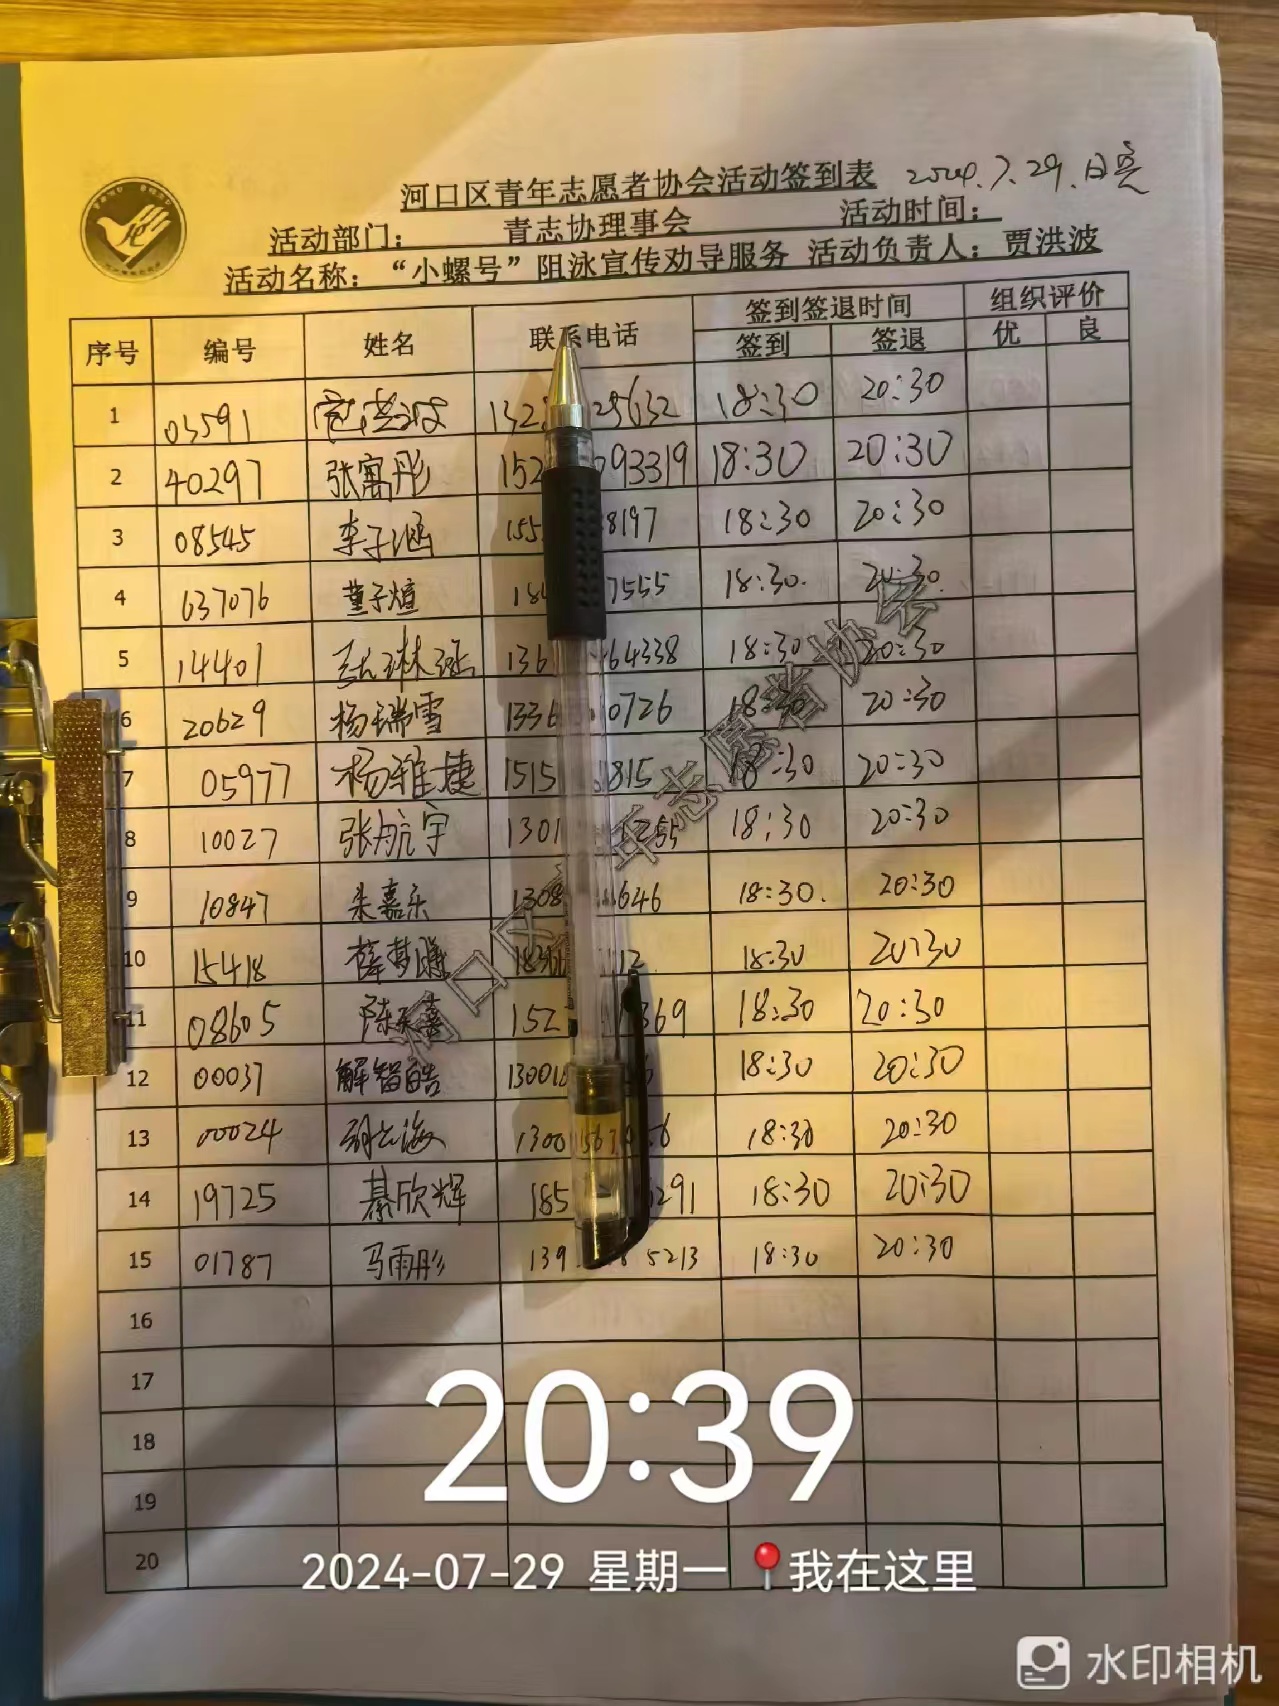 河口区青年志愿者协会活动签到表 2024.7.29.日亮
活动部门： 青志协理事会 活动时间：
活动名称：“小螺号”阻泳宣传劝导服务 活动负责人：贾洪波
序号 编号 姓名 联系电话 签到签退时间 组织评价
签到 签退 优 良
1 03591 132 25632 18:30 20:30
2 40297 张寓彤 152 93319 18:30 20:30
3 08545 李子涵 155 8197 18:30 20:30
4 637076 董子煊 18 7555 18:30. 20:30.
5 14401 136 64338 18:30 20:30
6 20629 杨瑞雪 1336 0726 18:30 20:30
7 05977 杨雅捷 1515 815 18:30 20:30
8 10027 张航宇 1301 255 18:30 20:30
9 10847 朱嘉乐 1308 646 18:30. 20:30
10 15418 183 12 18:30 20:30
11 08605 陈天喜 152 369 18:30 20:30
12 00037 解智皓 13001 6 18:30 20:30
13 00024 1300 6 18:30 20:30
14 19725 綦欣辉 185 291 18:30 20:30
15 01787 马雨彤 139 5213 18:30 20:30
16
17
18
19
20
河口区 年志愿者协会
20:39
2024-07-29 星期一 我在这里
水印相机